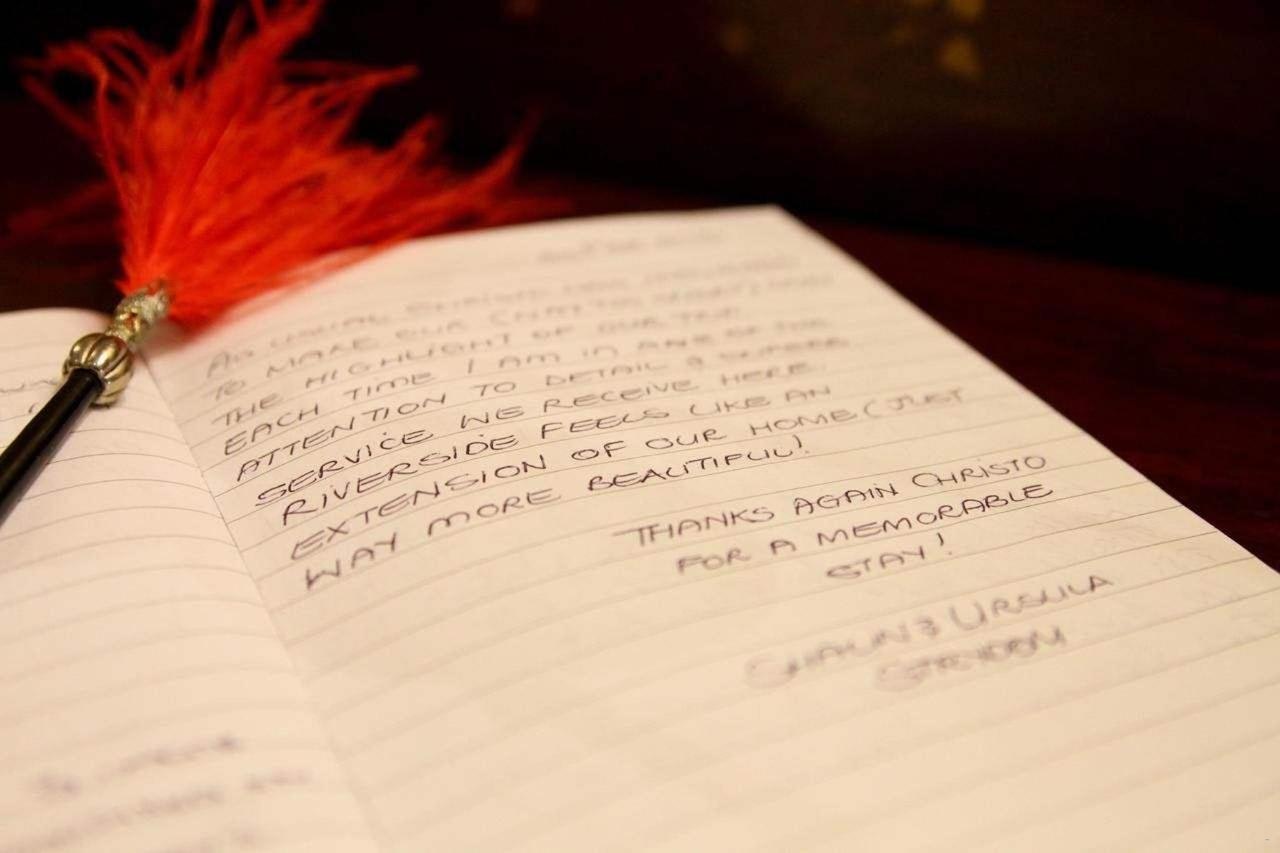 AS USUAL CHRISTO HAS
TO MAKE OUR STAY
THE HIGHLIGHT OF OUR TRIP.
EACH TIME I AM IN AWE OF THE
ATTENTION TO DETAIL & SUPERB
SERVICE WE RECEIVE HERE.
RIVERSIDE FEELS LIKE AN
EXTENSION OF OUR HOME (JUST
WAY MORE BEAUTIFUL)!
THANKS AGAIN CHRISTO
FOR A MEMORABLE
STAY!
SHAUN & URSULA